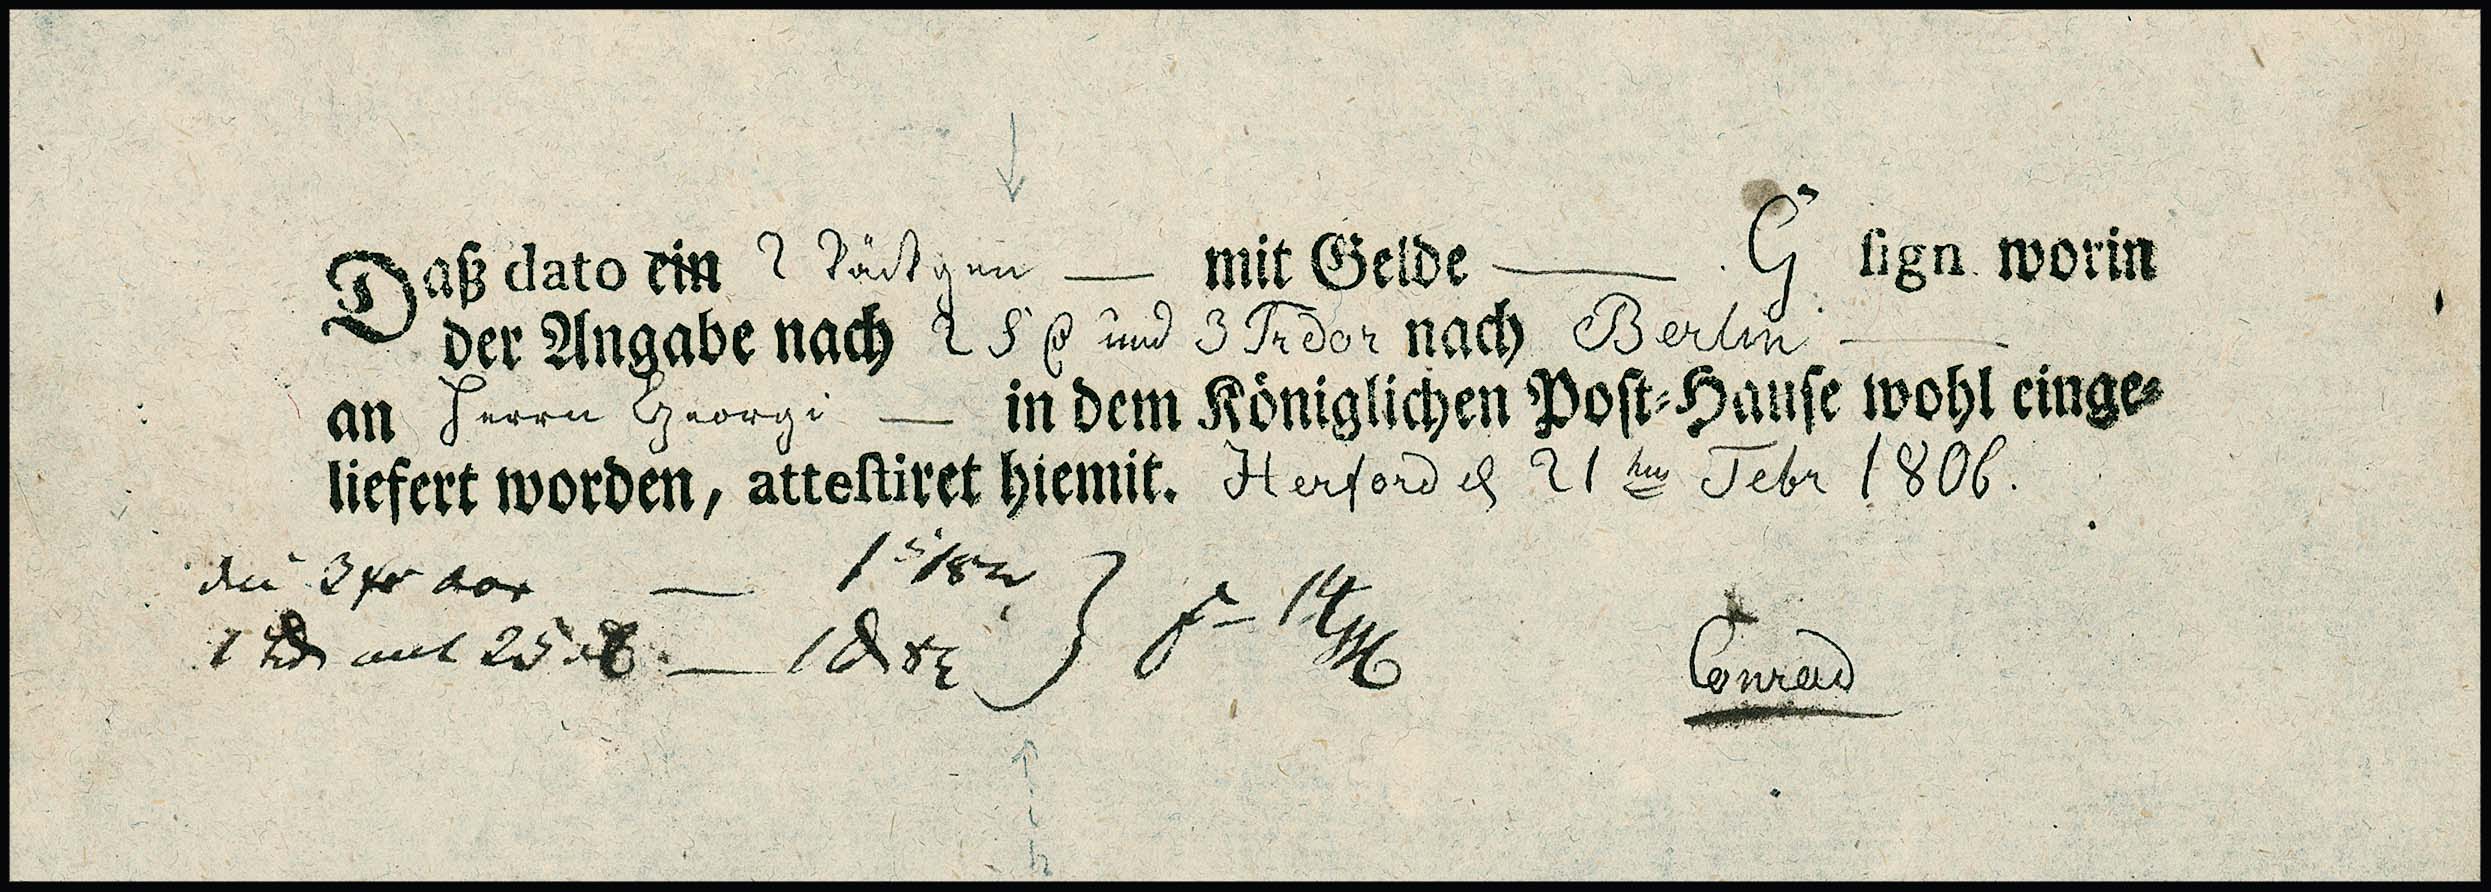 Daß dato ein 2 Päckgen — mit Gelde — G sign worin
der Angabe nach 25 und 3 Frdor nach Berlin —
an Herrn Georgi — in dem Königlichen Post-Hause wohl einge-
liefert worden, attestiret hiemit. Herford d 21ten Febr 1806.
3 dor —
1 mit 25 — 1
Conrad